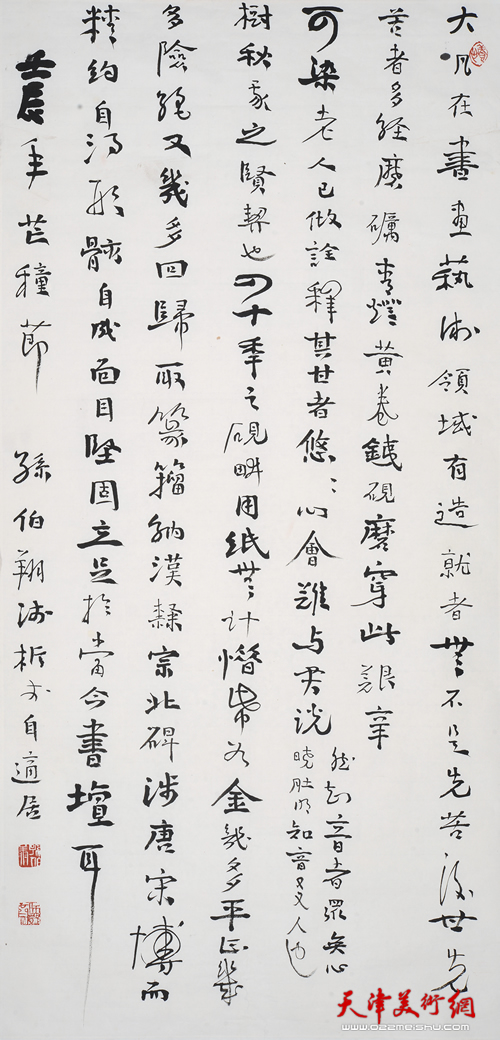 大凡在書畫藝術領域有造就者無不是先苦後世先
苦者多經磨礪青燈黃卷鐵硯磨穿此艱辛
可染老人已做詮釋其世者悠〻心會難与君説
然知音者眾矣心
曉肚明知音又人也
樹秋
之賢契也四十季之硯畊用紙無計惜
若金幾多平正幾
多險絕又幾多回歸取篆籀納漢隸宗北碑涉唐宋博而
精約自
形骸自成面目堅固立足於當今書壇耳
壬辰年芒種節 孫伯翔
析于自適居
天津美術網
www.022meishu.com